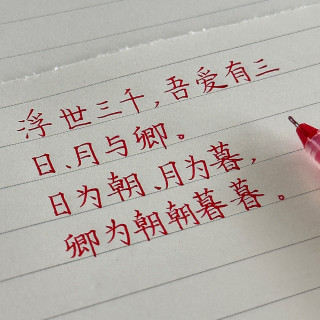 浮世三千,吾爱有三
日、月与卿。
日为朝、月为暮,
卿为朝朝暮暮。